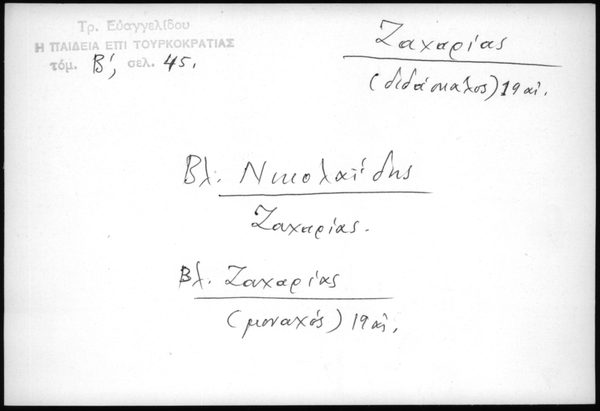 Τρ. Εὐαγγελίδου
Η ΠΑΙΔΕΙΑ ΕΠΙ ΤΟΥΡΚΟΚΡΑΤΙΑΣ
τόμ. Β', σελ. 45.
Ζαχαρίας
(διδάσκαλος) 19 αἰ.
Βλ. Νικολαΐδης
Ζαχαρίας.
Βλ. Ζαχαρίας
(μοναχός) 19 αἰ.